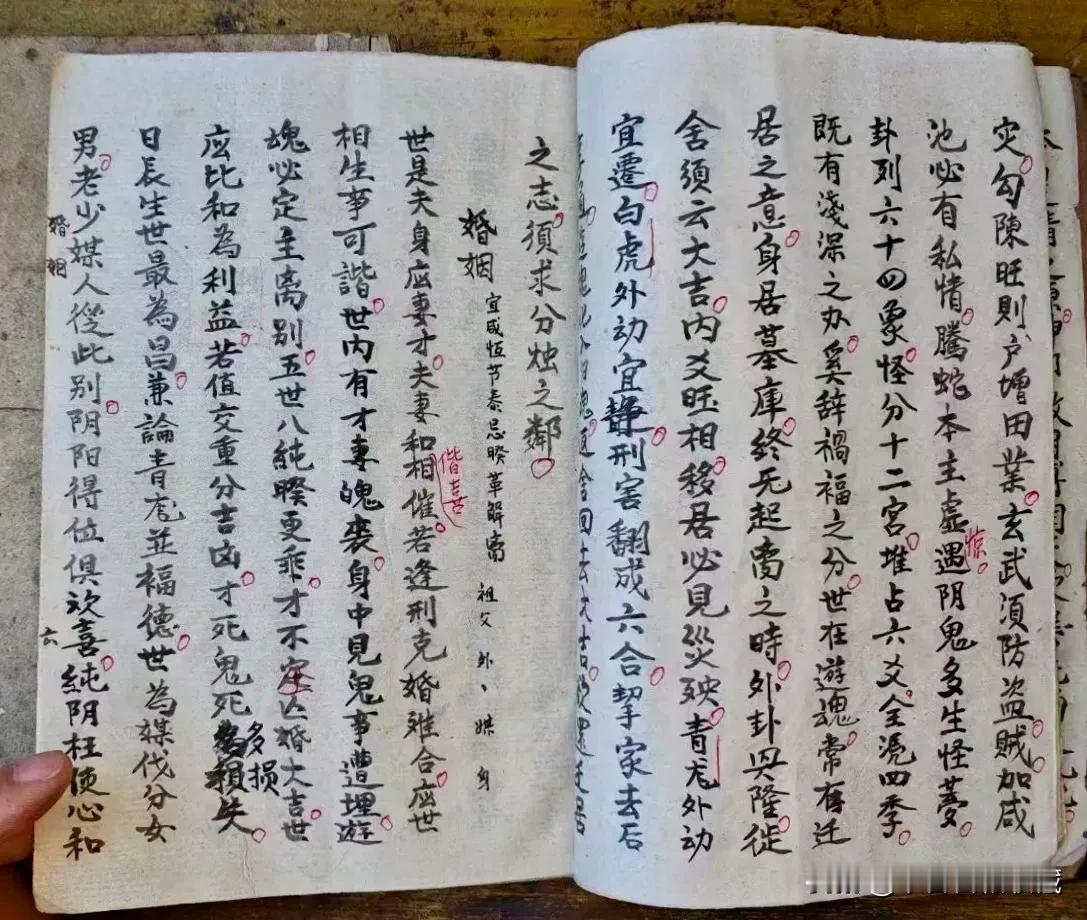 灾勾陳旺則户増田業玄武須防盜賊加咸
池必有私情騰蛇本主虛遇阴鬼多生怪夢
惊
卦列六十四象怪分十二宫堆占六爻全憑四季
既有淺深之办奚辞禍福之分世在遊魂常有迁
居之意身居墓庫終无起离之時外卦興隆徙
舍須云大吉内爻旺相移居必見災殃青龙外动
宜遷白虎外动宜静刑害翻成六合挈家去后
之志須求分烛之鄰
婚姻 宜咸恒节泰忌睽革解离 祖父 外、 媒 身
世是夫身应妻才夫妻和相催若逢刑克婚难合应世
偕吉
相生事可諧世内有才妻的丧身中見鬼事遭埋遊
魂必定主离别五世八純睽更乖才不定亡婚大吉世
应比和為利益若值交重分吉凶才死鬼死多损失
日辰生世最為昌兼論青龙並福德世為媒伐分女
男老少媒人從此别阴阳得位俱欢喜純阴枉使心和
婚姻
六